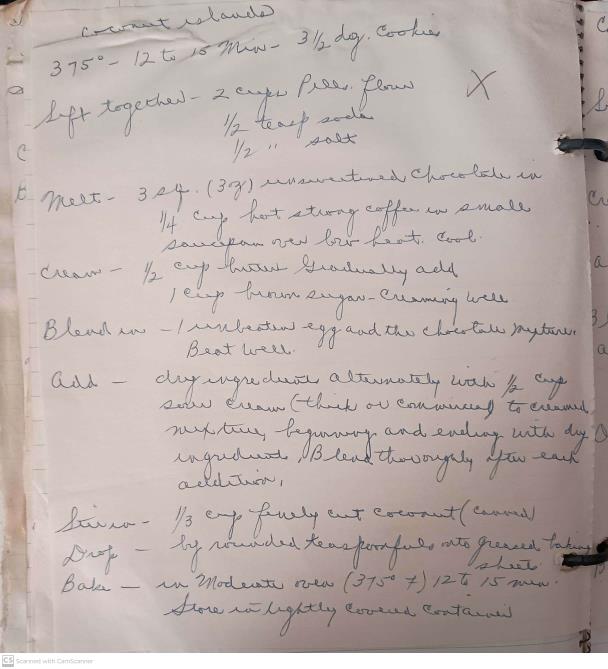 coconut islands
375° - 12 to 15 Min - 3 1/2 doz. Cookies
X
Sift together - 2 cups Pills. flour
1/2 teasp soda
1/2 " salt
Melt - 3 sq. (3 oz) unsweetened chocolate in
1/4 cup hot strong coffee in small
saucepan over low heat. Cool.
Cream - 1/2 cup butter Gradually add
1 cup brown sugar - Creaming well
Blend in - 1 unbeaten egg and the chocolate mixture.
Beat well.
Add - dry ingredients alternately with 1/2 cup
sour cream (thick or commercial) to creamed
mixture, beginning and ending with dry
ingredients, Blend thoroughly after each
addition,
Stir in - 1/3 cup finely cut coconut (canned)
Drop - by rounded teaspoonfuls onto greased baking
sheets
Bake - in Moderate oven (375° F) 12 to 15 min.
Store in tightly covered container
CS Scanned with CamScanner